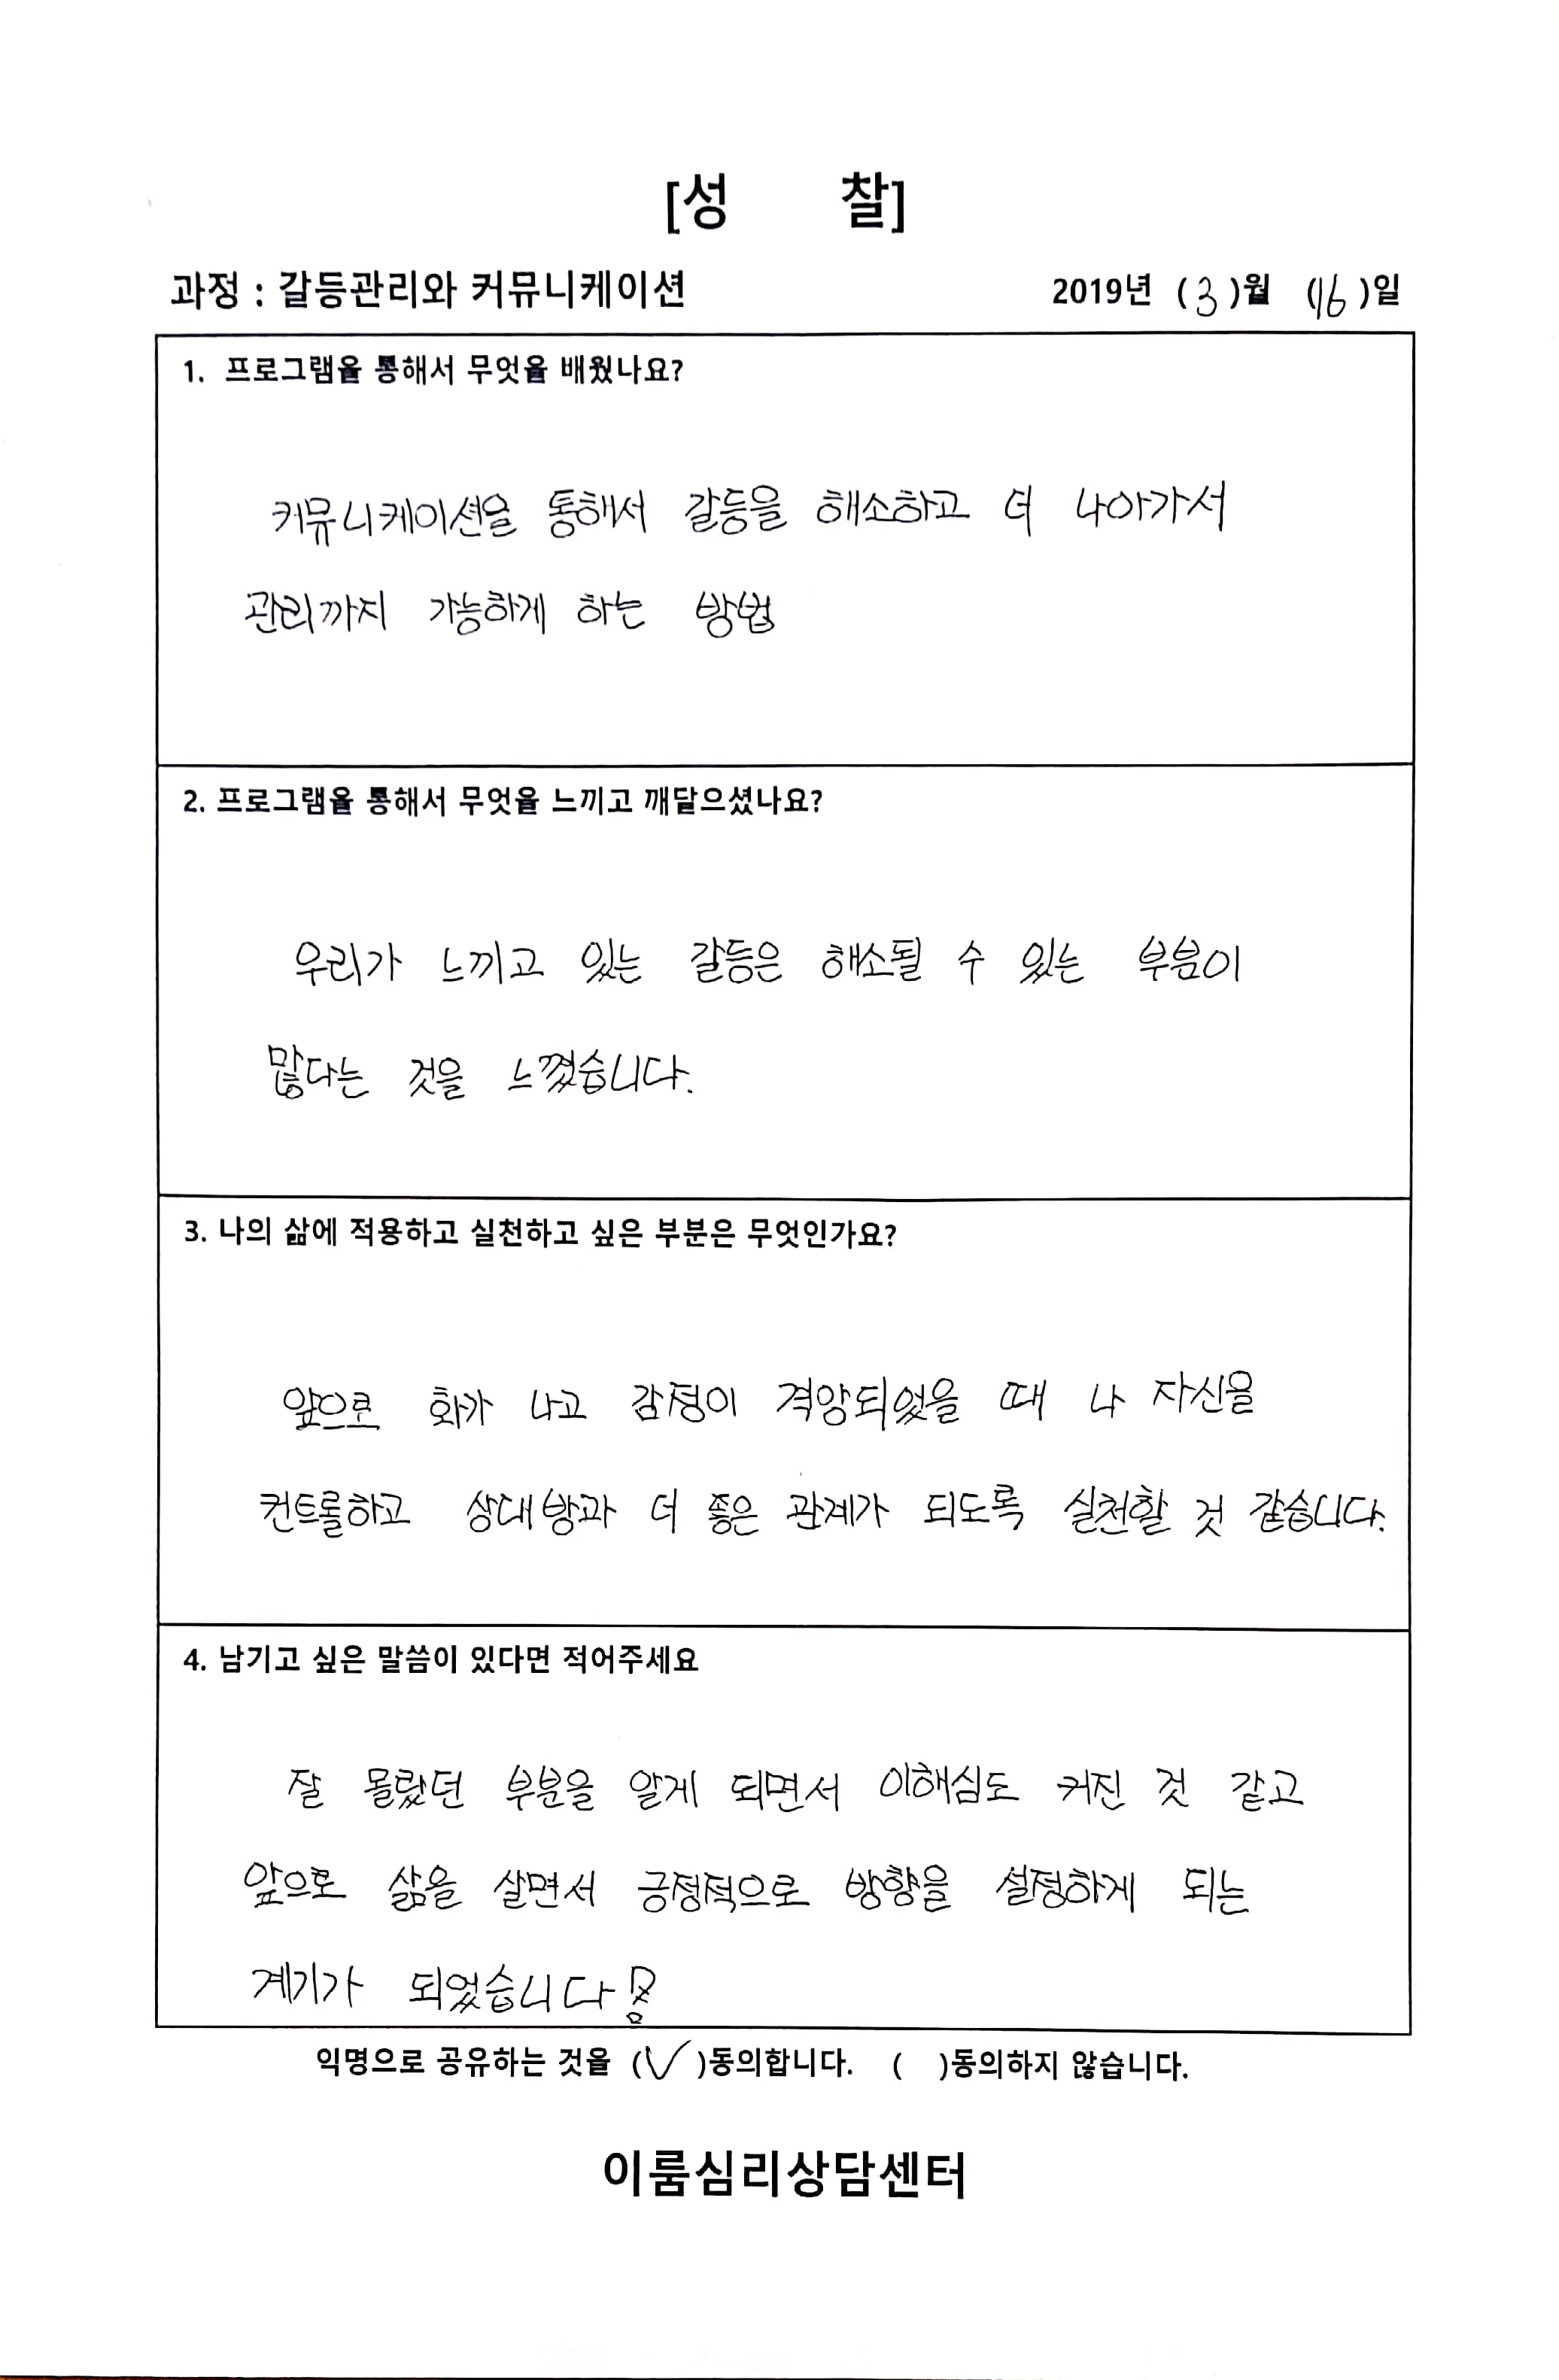 [성 찰]
과정 : 갈등관리와 커뮤니케이션 2019년 (3)월 (16)일
1. 프로그램을 통해서 무엇을 배웠나요?
커뮤니케이션을 통해서 갈등을 해소하고 더 나아가서
관리까지 가능하게 하는 방법
2. 프로그램을 통해서 무엇을 느끼고 깨달으셨나요?
우리가 느끼고 있는 갈등은 해소될 수 있는 부분이
많다는 것을 느꼈습니다.
3. 나의 삶에 적용하고 실천하고 싶은 부분은 무엇인가요?
앞으로 화가 나고 감정이 격앙되었을 때 나 자신을
컨트롤하고 상대방과 더 좋은 관계가 되도록 실천할 것 같습니다.
4. 남기고 싶은 말씀이 있다면 적어주세요
잘 몰랐던 부분을 알게 되면서 이해심도 커진 것 같고
앞으로 삶을 살면서 긍정적으로 방향을 설정하게 되는
계기가 되었습니다!
익명으로 공유하는 것을 (✓)동의합니다. ( )동의하지 않습니다.
이룸심리상담센터